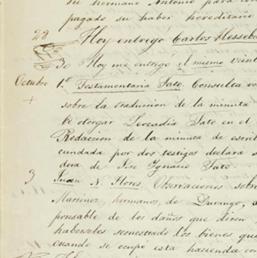 su hermano Antonio para
pagado su haber hereditario
28 Hoy entregó Carlos
30 Hoy me entregó el mismo veint
Octubre 1º Testamentaria Tato Consulta
sobre la traducion de la minuta
de otorgar Leocadia Tato en el
Redaccion de la minuta de escrit
cundada por dos testigos declara
dera de Jose Ygnacio Tato
3 Juan N. Flores Observaciones sobre
Martinez, hermanos, de Durango,
ponsable de los daños que dicen
haberseles secuestrado los bienes que
cuando se ocupó esta hacienda con